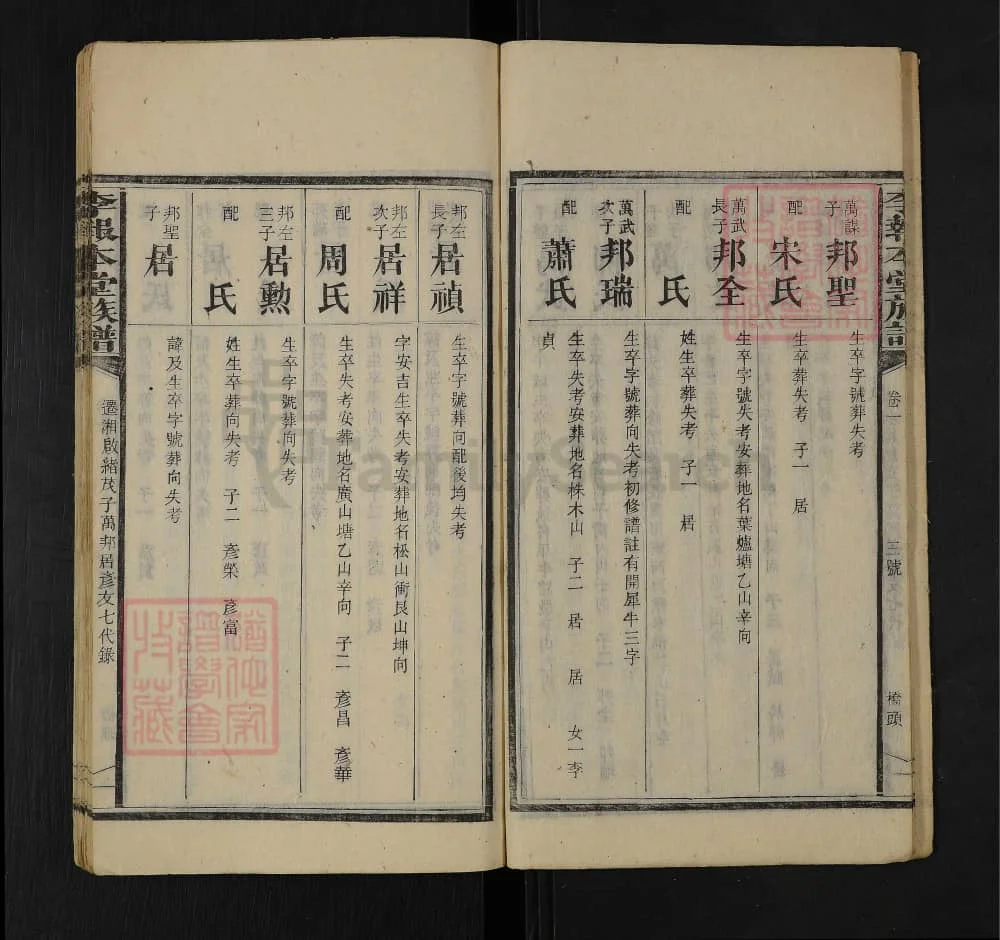 李報本堂族譜
卷一
三號
橋頭
萬謀子 邦聖 生卒字號葬失考
配 宋氏 生卒葬失考 子一 居
萬武長子 邦全 生卒字號失考安葬地名葉爐塘乙山辛向
配 氏 姓生卒葬失考 子一 居
萬武次子 邦瑞 生卒字號葬向失考初修譜註有開犀牛三字
配 蕭氏 生卒失考安葬地名株木山 子二 居 居 女一李
貞
邦左長子 居禎 生卒字號葬向配後均失考
邦左次子 居祥 字安吉生卒失考安葬地名松山衝艮山坤向
配 周氏 生卒失考安葬地名廣山塘乙山辛向 子二 彥昌 彥華
邦左三子 居勲 生卒字號葬向失考
配 氏 姓生卒葬向失考 子二 彥榮 彥富
邦聖子 居 諱及生卒字號葬向失考
李報本堂族譜
遷湘啟緒茂子萬邦居彥友七代錄
FamilySearch